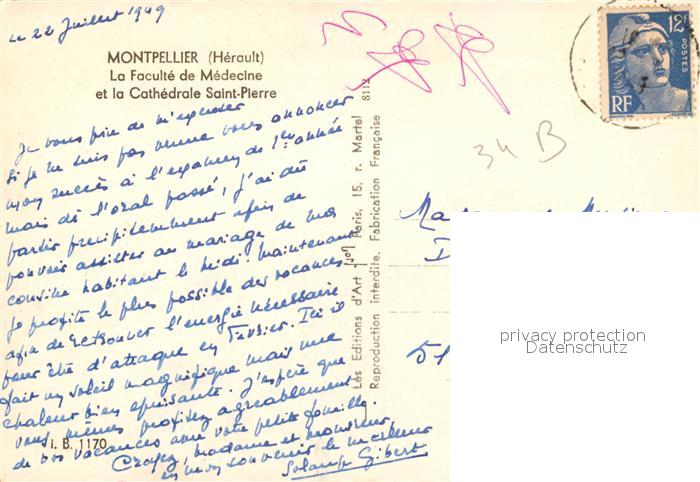 Le 22 Juillet 1949
MONTPELLIER (Hérault)
La Faculté de Médecine
et la Cathédrale Saint-Pierre
Je vous prie de m'excuser
si je ne suis pas venue vous annoncer
mon succès à l'examen de 1ère année
mais dès l'oral passé, j'ai dû
partir précipitemment afin de
pouvoir assister au mariage de ma
cousine habitant le midi. Maintenant
je profite le plus possible des vacances
afin de retrouver l'énergie nécessaire
pour être d'attaque en Janvier. Ici il
fait un soleil magnifique mais une
chaleur bien épuisante. J'espère que
vous mêmes profitez agréablement
de vos vacances avec votre petite famille.
Croyez, Madame et Monsieur,
en mon souvenir le meilleur
Solange Gibert
I. B. 1170
Les Editions d'Art Paris, 15, r. Martel 8112
Reproduction interdite. Fabrication Française
34 B
12F
POSTES
RF
51
privacy protection
Datenschutz